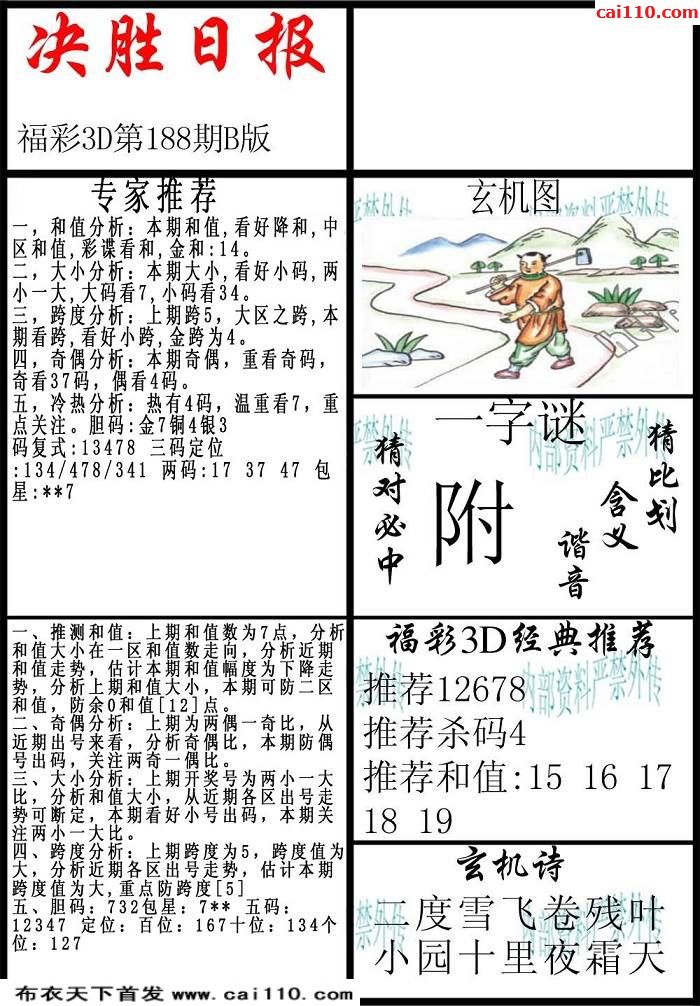 cai110.com
决胜日报
福彩3D第188期B版
专家推荐
一，和值分析：本期和值,看好降和,中
区和值,彩谍看和,金和:14。
二，大小分析：本期大小,看好小码,两
小一大,大码看7,小码看34。
三，跨度分析：上期跨5，大区之跨,本
期看跨,看好小跨,金跨为4。
四，奇偶分析：本期奇偶，重看奇码，
奇看37码，偶看4码。
五，冷热分析：热有4码，温重看7，重
点关注。胆码:金7铜4银3
码复式:13478 三码定位
:134/478/341 两码:17 37 47 包
星:**7
玄机图
一字谜
猜对必中
附
猜比划
含义
谐音
内部资料严禁外传
一、推测和值：上期和值数为7点，分析
和值大小在一区和值数走向，分析近期
和值走势，估计本期和值幅度为下降走
势，分析上期和值大小，本期可防二区
和值，防余0和值[12]点。
二、奇偶分析：上期为两偶一奇比，从
近期出号来看，分析奇偶比，本期防偶
号出码，关注两奇一偶比。
三、大小分析：上期开奖号为两小一大
比，分析和值大小，从近期各区出号走
势可断定，本期看好小号出码，本期关
注两小一大比。
四、跨度分析：上期跨度为5，跨度值为
大，分析近期各区出号走势，估计本期
跨度值为大,重点防跨度[5]
五、胆码：732包星：7** 五码：
12347 定位：百位：167十位：134个
位：127
福彩3D经典推荐
推荐12678
推荐杀码4
推荐和值:15 16 17
18 19
玄机诗
二度雪飞卷残叶
小园十里夜霜天
布衣天下首发 www.cai110.com